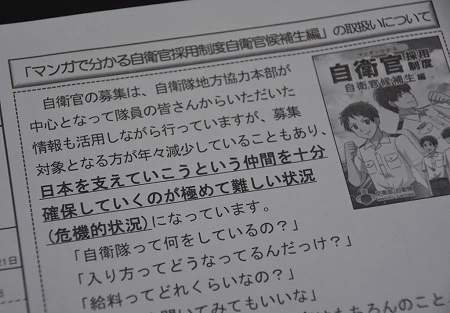 「マンガで分かる自衛官採用制度自衛官候補生編」の取扱いについて
自衛官の募集は、自衛隊地方協力本部が
中心となって隊員の皆さんからいただいた
情報も活用しながら行っていますが、募集
対象となる方が年々減少していることもあり、
日本を支えていこうという仲間を十分
確保していくのが極めて難しい状況
(危機的状況)になっています。
「自衛隊って何をしているの？」
「入り方ってどうなってるんだっけ？」
「給料ってどれくらいなの？」
聞いてみてもいいな」
もちろんのこと
自衛官採用制度
自衛官候補生編
21日